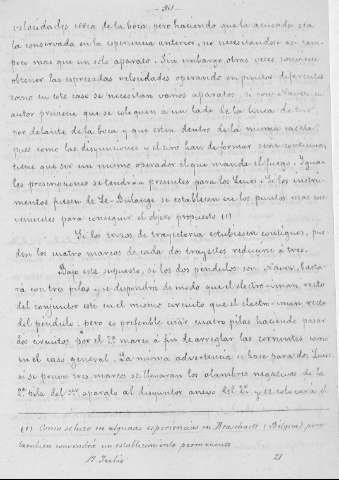 velocidades cerca de la boca, pero haciendo que la acusada sea
la conservada en la esperiencia anterior, no necesitandose siem-
pre mas que un solo aparato. Sin embargo otras veces conviene
obtener las espresadas velocidades operando en puntos diferentes
como en este caso se necesitan varios aparatos, si son Navez, el
autor previene que se coloquen a un lado de la linea de tiro,
por delante de la boca y que esten dentro de la misma caseta;
pues como las disyunciones y el tiro han de formar serie continua,
tiene que ser un mismo operador el que mande el fuego. Igua-
les prevenciones se tendran presentes para los Leurs. Si los instru-
mentos fuesen de Le-Boulangé se establecen en los puntos mas con-
venientes para conseguir el objeto propuesto (1)
Si los trozos de trayectoria estubiesen contiguos, pue-
den los cuatro marcos de cada dos trayectos reducirse á tres.
Bajo este supuesto, si los dos pendulos son Navez, basta-
rá con tres pilas y se dispondra de modo que el electro-iman recto
del conjuntor este en el mismo circuito que el electro-iman recto
del pendulo; pero es preferible usar cuatro pilas haciendo pasar
dos circuitos por el 2º marco á fin de arreglar las corrientes como
en el caso general. La misma advertencia se hace para dos Leurs
si se pone tres marcos se llevaran los alambres negativos de la
2ª pila del 1er aparato al disyuntor anexo del 2º y se colocará el
(1) Como se hizo en algunas esperiencias en Braschaet (Belgica) pero
tambien convendrá un establecimiento permanente
21